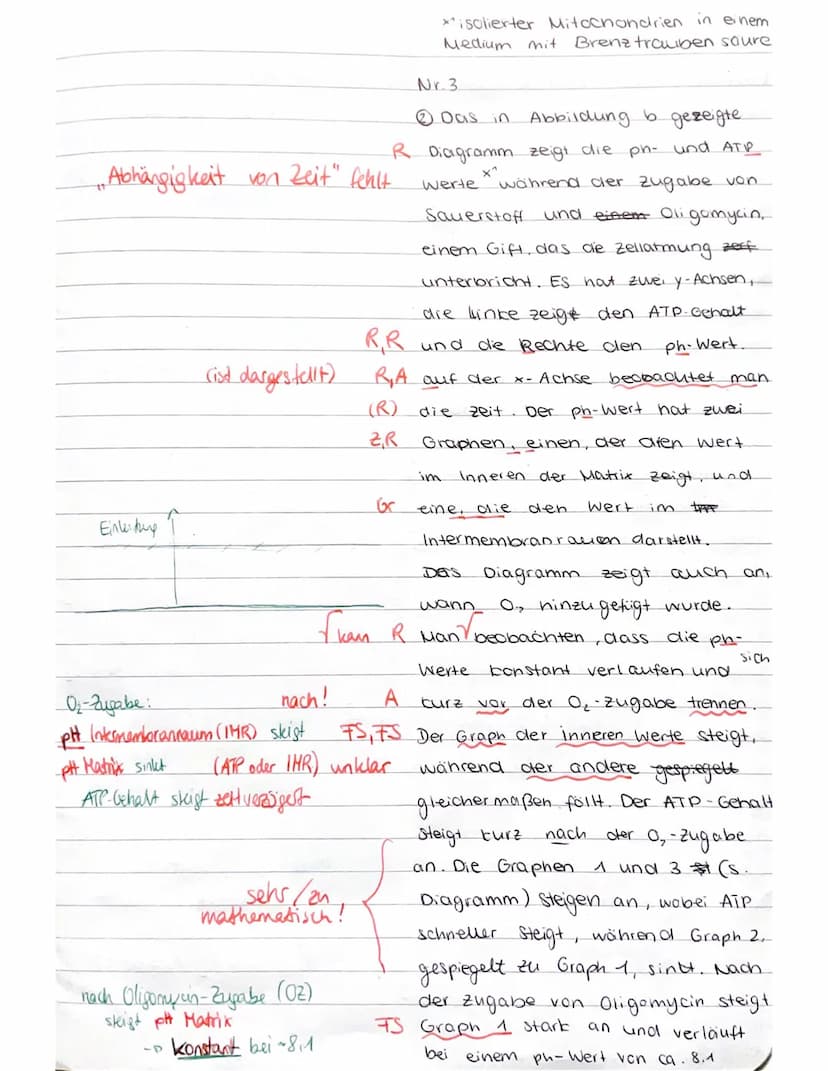 x" isolierter Mitochondrien in einem
Medium mit Brenztraubensäure
Nr. 3
② Das in Abbildung b gezeigte
R Diagramm zeigt die ph- und ATP
„Abhängigkeit von Zeit" fehlt werte x" während der Zugabe von
Sauerstoff und einem Oligomycin,
einem Gift, das die Zellatmung
unterbricht. Es hat zwei y-Achsen,
die linke zeigt den ATP-Gehalt
R,R und die Rechte den ph-Wert.
(ist dargestellt) R,A auf der x-Achse beobachtet man
(R) die Zeit. Der ph-Wert hat zwei
Z,R Graphen, einen, der den Wert
im Inneren der Matrix zeigt, und
Gr eine, die den Wert im
Einleitung
Intermembranraum darstellt.
Das Diagramm zeigt auch an,
wann O₂ hinzugefügt wurde.
√ kann R Man √ beobachten, dass die ph-
Werte konstant verlaufen und sich
O₂-Zugabe: nach! A kurz vor der O₂-Zugabe trennen.
pH Intermembranraum (IMR) steigt FS, FS Der Graph der inneren Werte steigt,
pH Matrix sinkt (ATP oder IMR) unklar während der andere gespiegelt
ATP-Gehalt steigt zeitverzögert gleichermaßen fällt. Der ATP-Gehalt
steigt kurz nach der O₂-Zugabe
an. Die Graphen 1 und 3 (s.
sehr/zu mathematisch! Diagramm) steigen an, wobei ATP
schneller steigt, während Graph 2,
gespiegelt zu Graph 1, sinkt. Nach
nach Oligomycin-Zugabe (OZ) der Zugabe von Oligomycin steigt
steigt pH Matrix FS Graph 1 stark an und verläuft
→ konstant bei ~8,1 bei einem ph-Wert von ca. 8,1